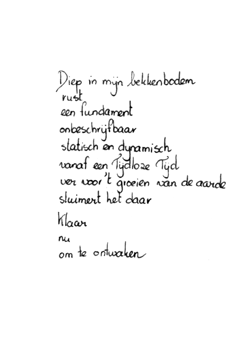 Diep in mijn bekkenbodem
rust
een fundament
onbeschrijfbaar
statisch en dynamisch
vanaf een Tijdloze Tijd
ver voor't groeien van de aarde
sluimert het daar
Klaar
nu
om te ontwaken